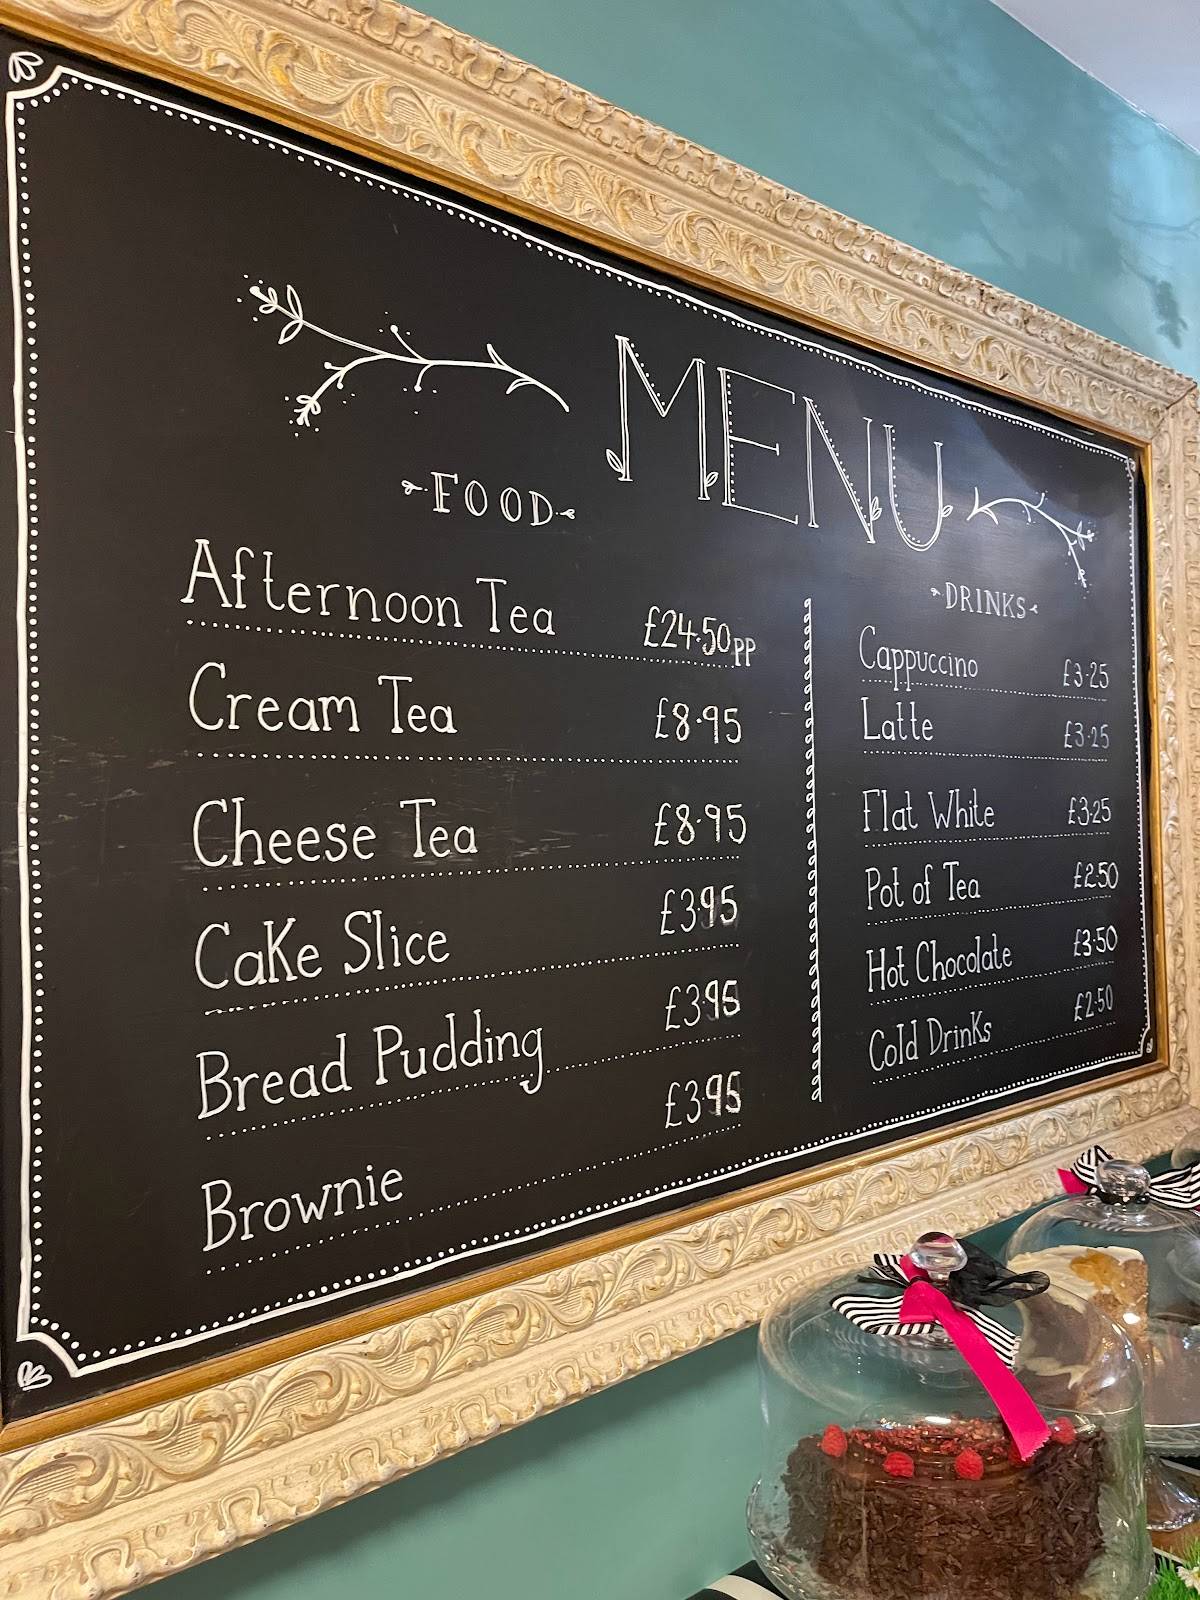 MENU
FOOD
Afternoon Tea £24.50pp
Cream Tea £8.95
Cheese Tea £8.95
Cake Slice £3.95
Bread Pudding £3.95
Brownie £3.95
DRINKS
Cappuccino £3.25
Latte £3.25
Flat White £3.25
Pot of Tea £2.50
Hot Chocolate £3.50
Cold Drinks £2.50